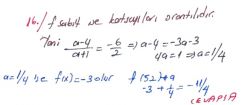 16-) f sabit ve katsayıları orantılıdır.
Yani a-4/a+1 = -6/2 => a-4 = -3a-3
4a = 1 => a = 1/4
a = 1/4 ise f(x) = -3 olur f(52)+a
-3 + 1/4 = -11/4
(CEVAP: A